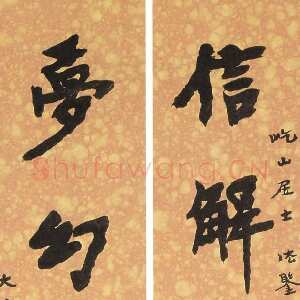 信解
屹山居士法鑒
夢幻
大
Shufawang.CN